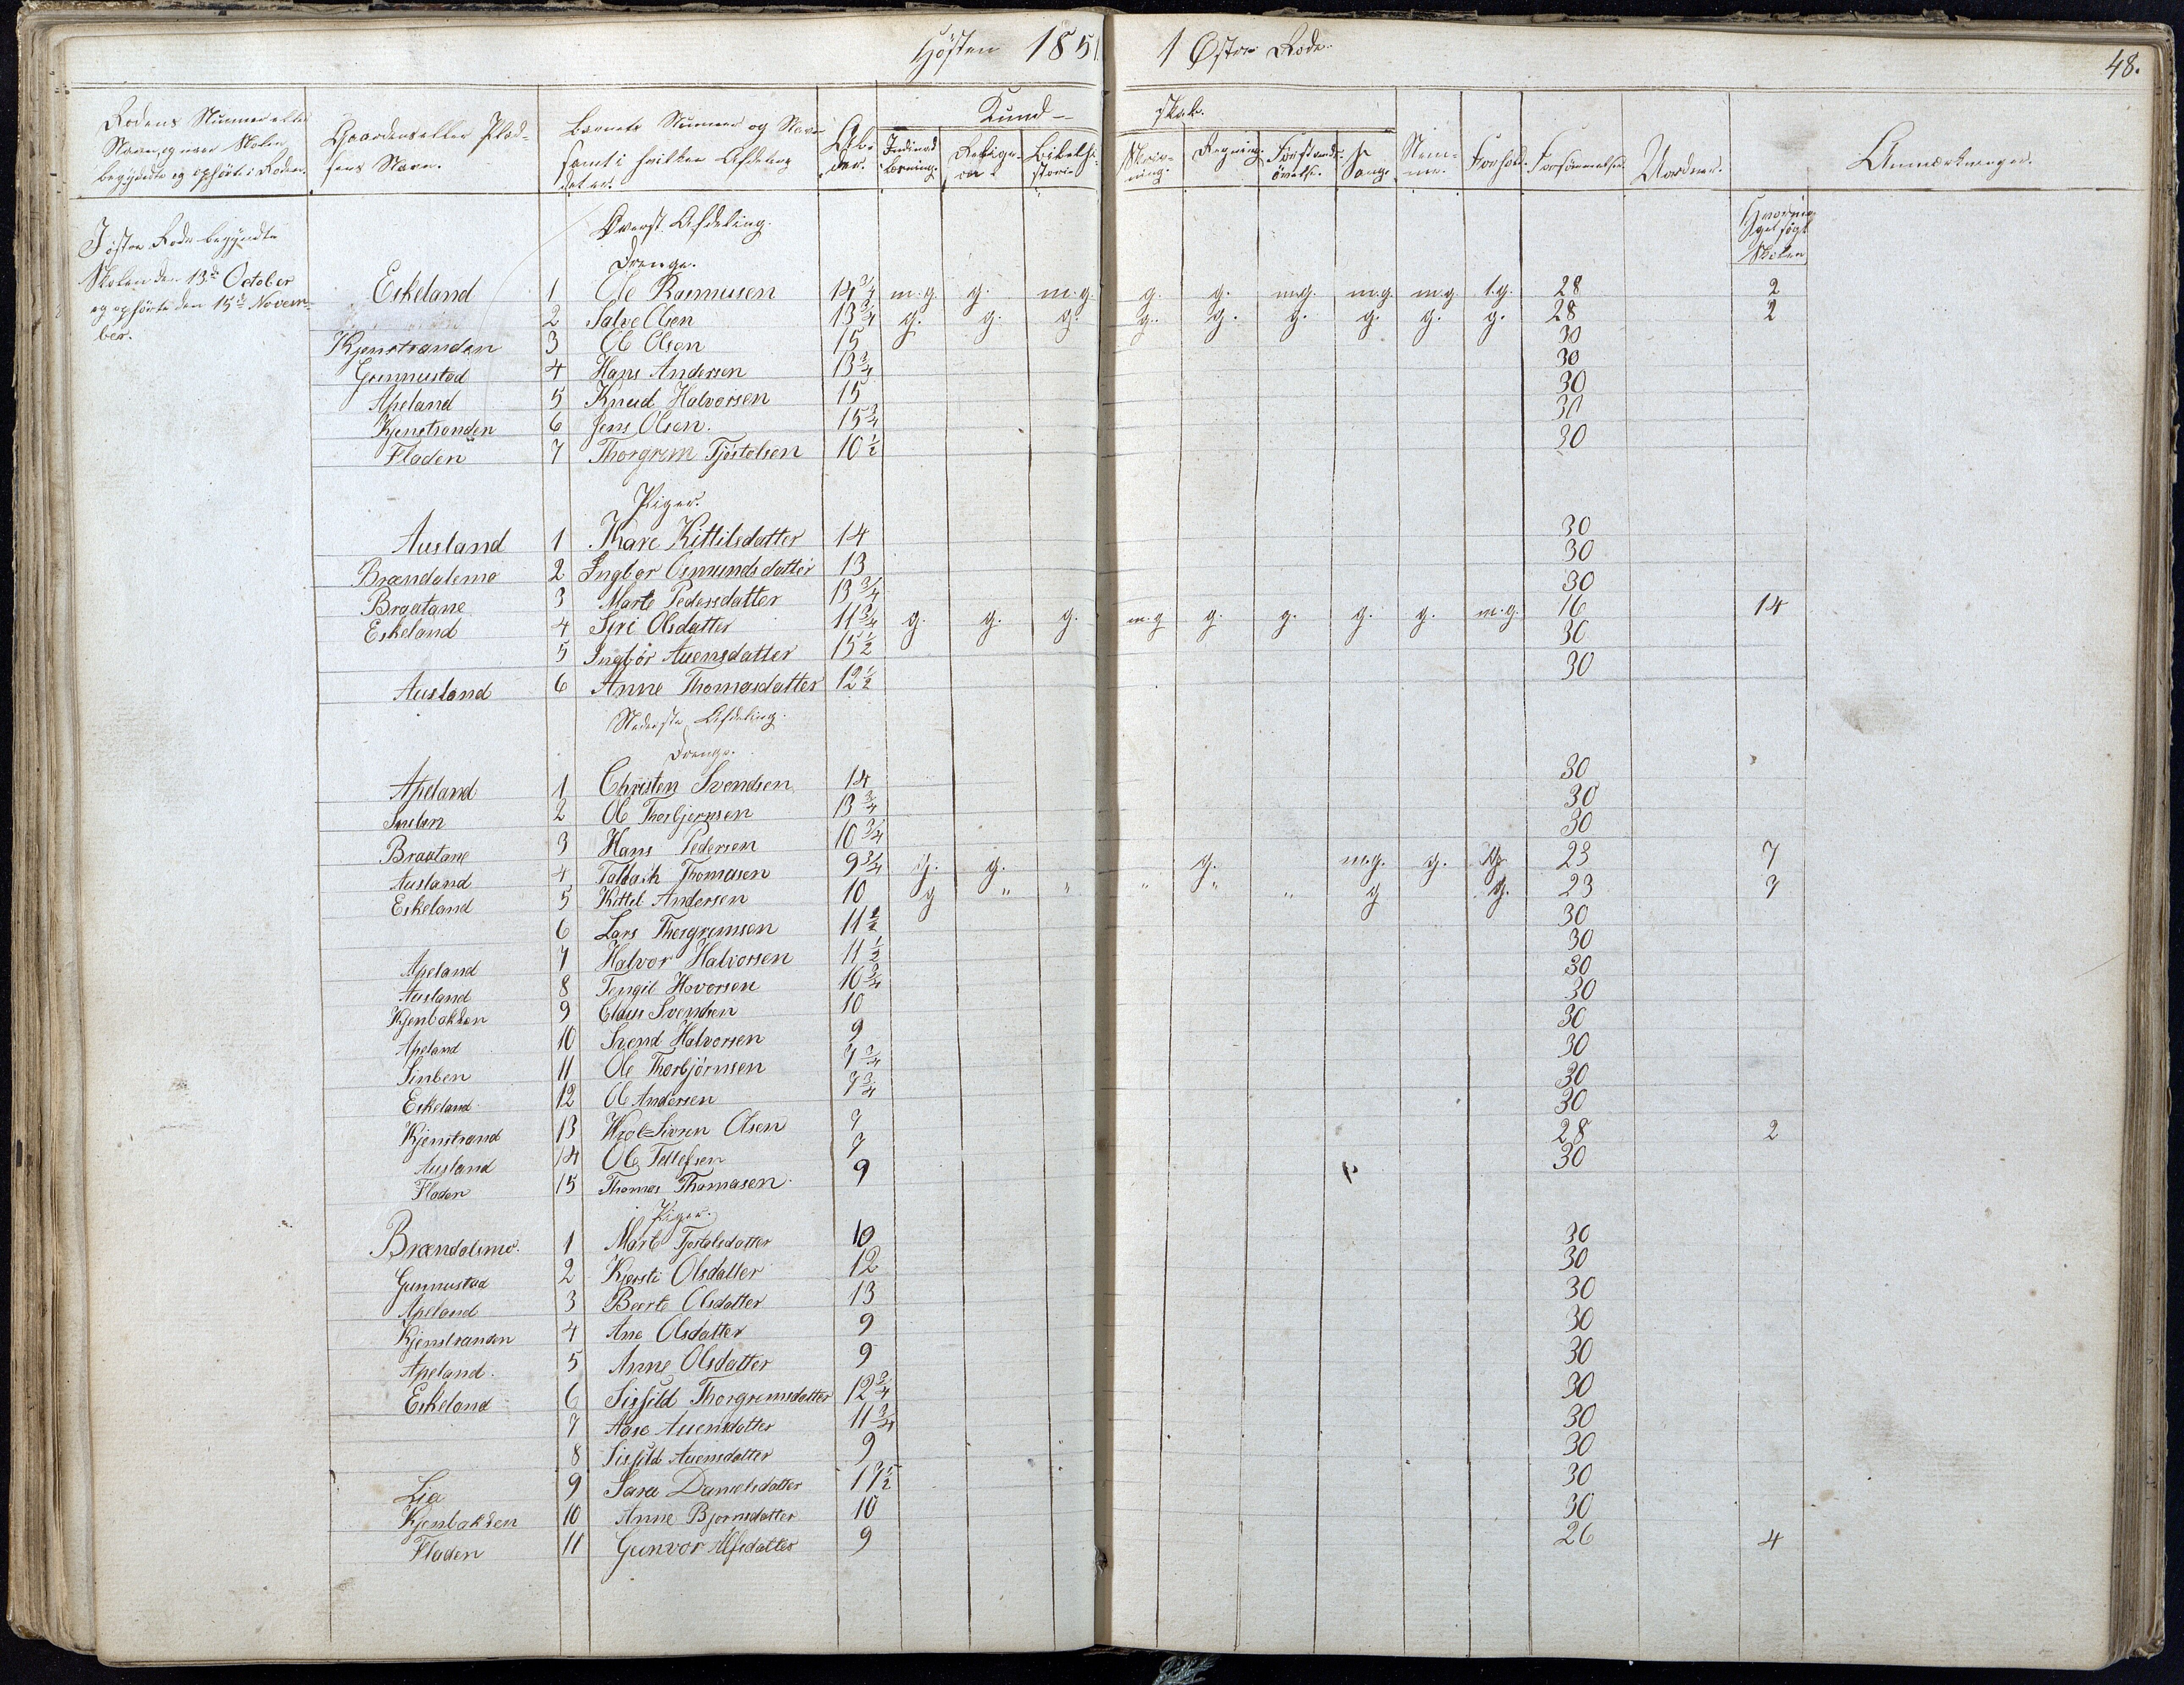 Høsten 1851 1 Østre Rode. 48.
Rodens Nummer eller Navn, og naar Skolen begyndte og ophørte i Roden.
Gaardens eller Pladsens Navn.
Barnets Nummer og Navn samt i hvilken Afdeling det er.
Alder.
Kundskab.
Indenadslæsning. Religion. Bibelhistorie. Skrivning. Regning. Forstandsøvelse. Sang.
Nemme. Forhold. Forsømmelser. Uordner. Anmærkninger.
I østre Rode begyndte
Skolen den 13de October
og ophørte den 15de Novem-
ber.
Øverst Afdeling.
Søgt
Skolen
Drenge.
Eskeland 1 Ole Rasmusen 14 3/4 m.g. g. m.g. g. g. m.g. m.g. m.g. t.g. 28 2
2 Salve Olsen 13 3/4 g. g. g. g. g. g. g. g. g. 28 2
Kjenstranden 3 Ole Olsen 15 30
Gunnustad 4 Hans Andersen 13 3/4 30
Apeland 5 Knud Halvorsen 15 30
Kjenstranden 6 Jens Olsen. 15 3/4 30
Fladen 7 Thorgrem Tjöstolsen 10 1/2 30
Piger.
Ausland 1 Thare Kittilsdatter 14 30
Brændalsmo 2 Ingbor Osmundsdatter 13 30
Braatane 3 Marte Pedersdatter 13 3/4 30
Eskeland 4 Siri Olsdatter 11 3/4 g. g. g. m.g g. g. g. g. m.g. 16 14
5 Ingbör Auensdatter 15 1/2 30
Ausland 6 Anne Thomasdatter 12 1/2 30
Nederste Afdeling.
Drenge.
Apeland 1 Christen Svendsen 14 30
2 Ole Thorbjornsen 13 3/4 30
Braatane 3 Hans Pedersen 10 3/4 30
Ausland 4 Thomasen 9 3/4 g. g. g. m.g. g. g. 23 7
Eskeland 5 Kittel Andersen 10 g " " " " " g g. 23 7
6 Lars Thorgrimsen 11 1/2 30
Apeland 7 Halvor Halvorsen 11 1/2 30
Ausland 8 Tengil Hovorsen 10 3/4 30
Kjenbakken 9 Claus Svendsen 10 30
Apeland 10 Svend Halvorsen 9 30
11 Ole Thorbjörnsen 7 3/4 30
Eskeland 12 Ole Andersen 7 3/4 30
Kjenstrand 13 Olsen 7 30
Ausland 14 Ole Tellefsen 7 28 2
Fladen 15 Thomas Thomasen 9 30
Piger.
Brændalsmo. 1 Marte Tjostolsdatter 10 30
Gunnustad 2 Kjersti Olsdatter 12 30
Apeland 3 Beerte Olsdatter 13 30
Kjenstranden 4 Ane Olsdatter 9 30
Apeland. 5 Anne Olsdatter 9 30
Eskeland 6 Sissild Thorgremsdatter 12 3/4 30
7 Aase Auensdatter 11 3/4 30
8 Sissild Auensdatter 9 30
Lia 9 Sara Danielsdatter 13 1/2 30
Kjenbakken 10 Anne Bjornsdatter 10 30
Fladen 11 Gunvor Alfsdatter 9 26 4